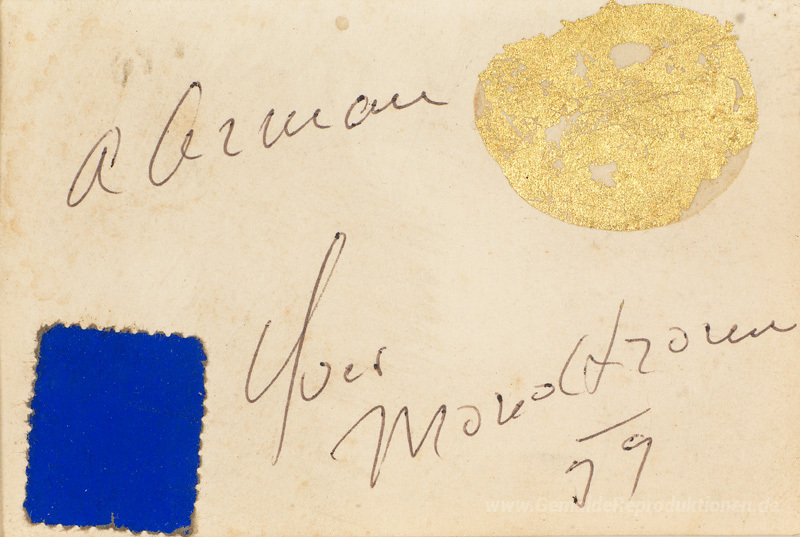 A Arman
Yves
Monochrome
59
www.GemaeldeReproduktionen.de